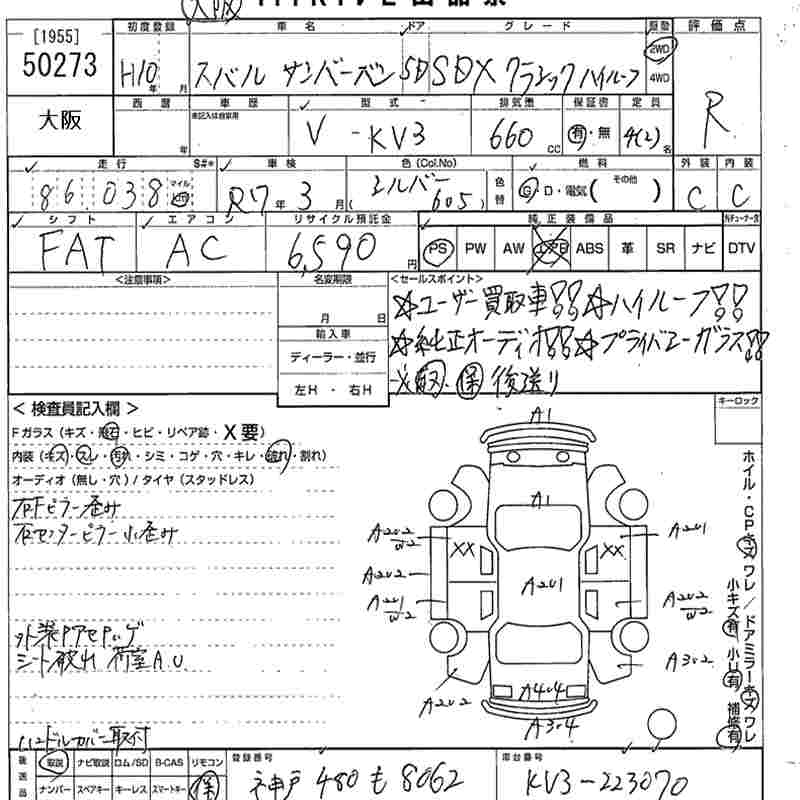 大阪
[1955]
50273
大阪
初度登録 車名 ドア グレード 駆動 評価点
H10年 月 スバル サンバーバン 5D SDX クラシックハイルーフ 2WD 4WD R
西暦 車歴 型式 排気量 保証書 定員
年 未記入は自家用 V-KV3 660cc 有・無 4(2)名
走行 S#* 車検 色(Col.No) 燃料 外装 内装
86,038 マイル km R7年3月 シルバー (605) 色替 G・D・電気( その他 ) C C
シフト エアコン リサイクル預託金 純正装備品
FAT AC 6,590円 PS PW AW エアB ABS 革 SR ナビ DTV
<注意事項> 名変期限 <セールスポイント>
月 日
輸入車
ディーラー・並行
左H・右H
☆ユーザー買取車!!☆ハイルーフ!!
☆純正オーディオ!!☆プライバシーガラス!!
取・保 後送り
キーロック
<検査員記入欄>
Fガラス(キズ・飛石・ヒビ・リペア跡・X要)
内装(キズ・スレ・汚れ・シミ・コゲ・穴・キレ・破れ・割れ)
オーディオ(無し・穴)/タイヤ(スタッドレス)
右Fピラー歪み
右センターピラー小歪み
シート破れ 荷室A.U
ハンドルカバー取付
A1
A1
A202 W2
XX
XX
A201
A202
A201
A201 W2
A202 W2
A302
A202
A404
A304
ホイル・CPキズワレ/ドアミラーキズワレ
小キズ有 小U有 補修有
後送品 取説 ナビ取説 ロム/SD B-CAS リモコン 登録番号 車台番号
ナンバー スペアキー キーレス スマートキー 保 神戸 480 も 8062 KV3-223070